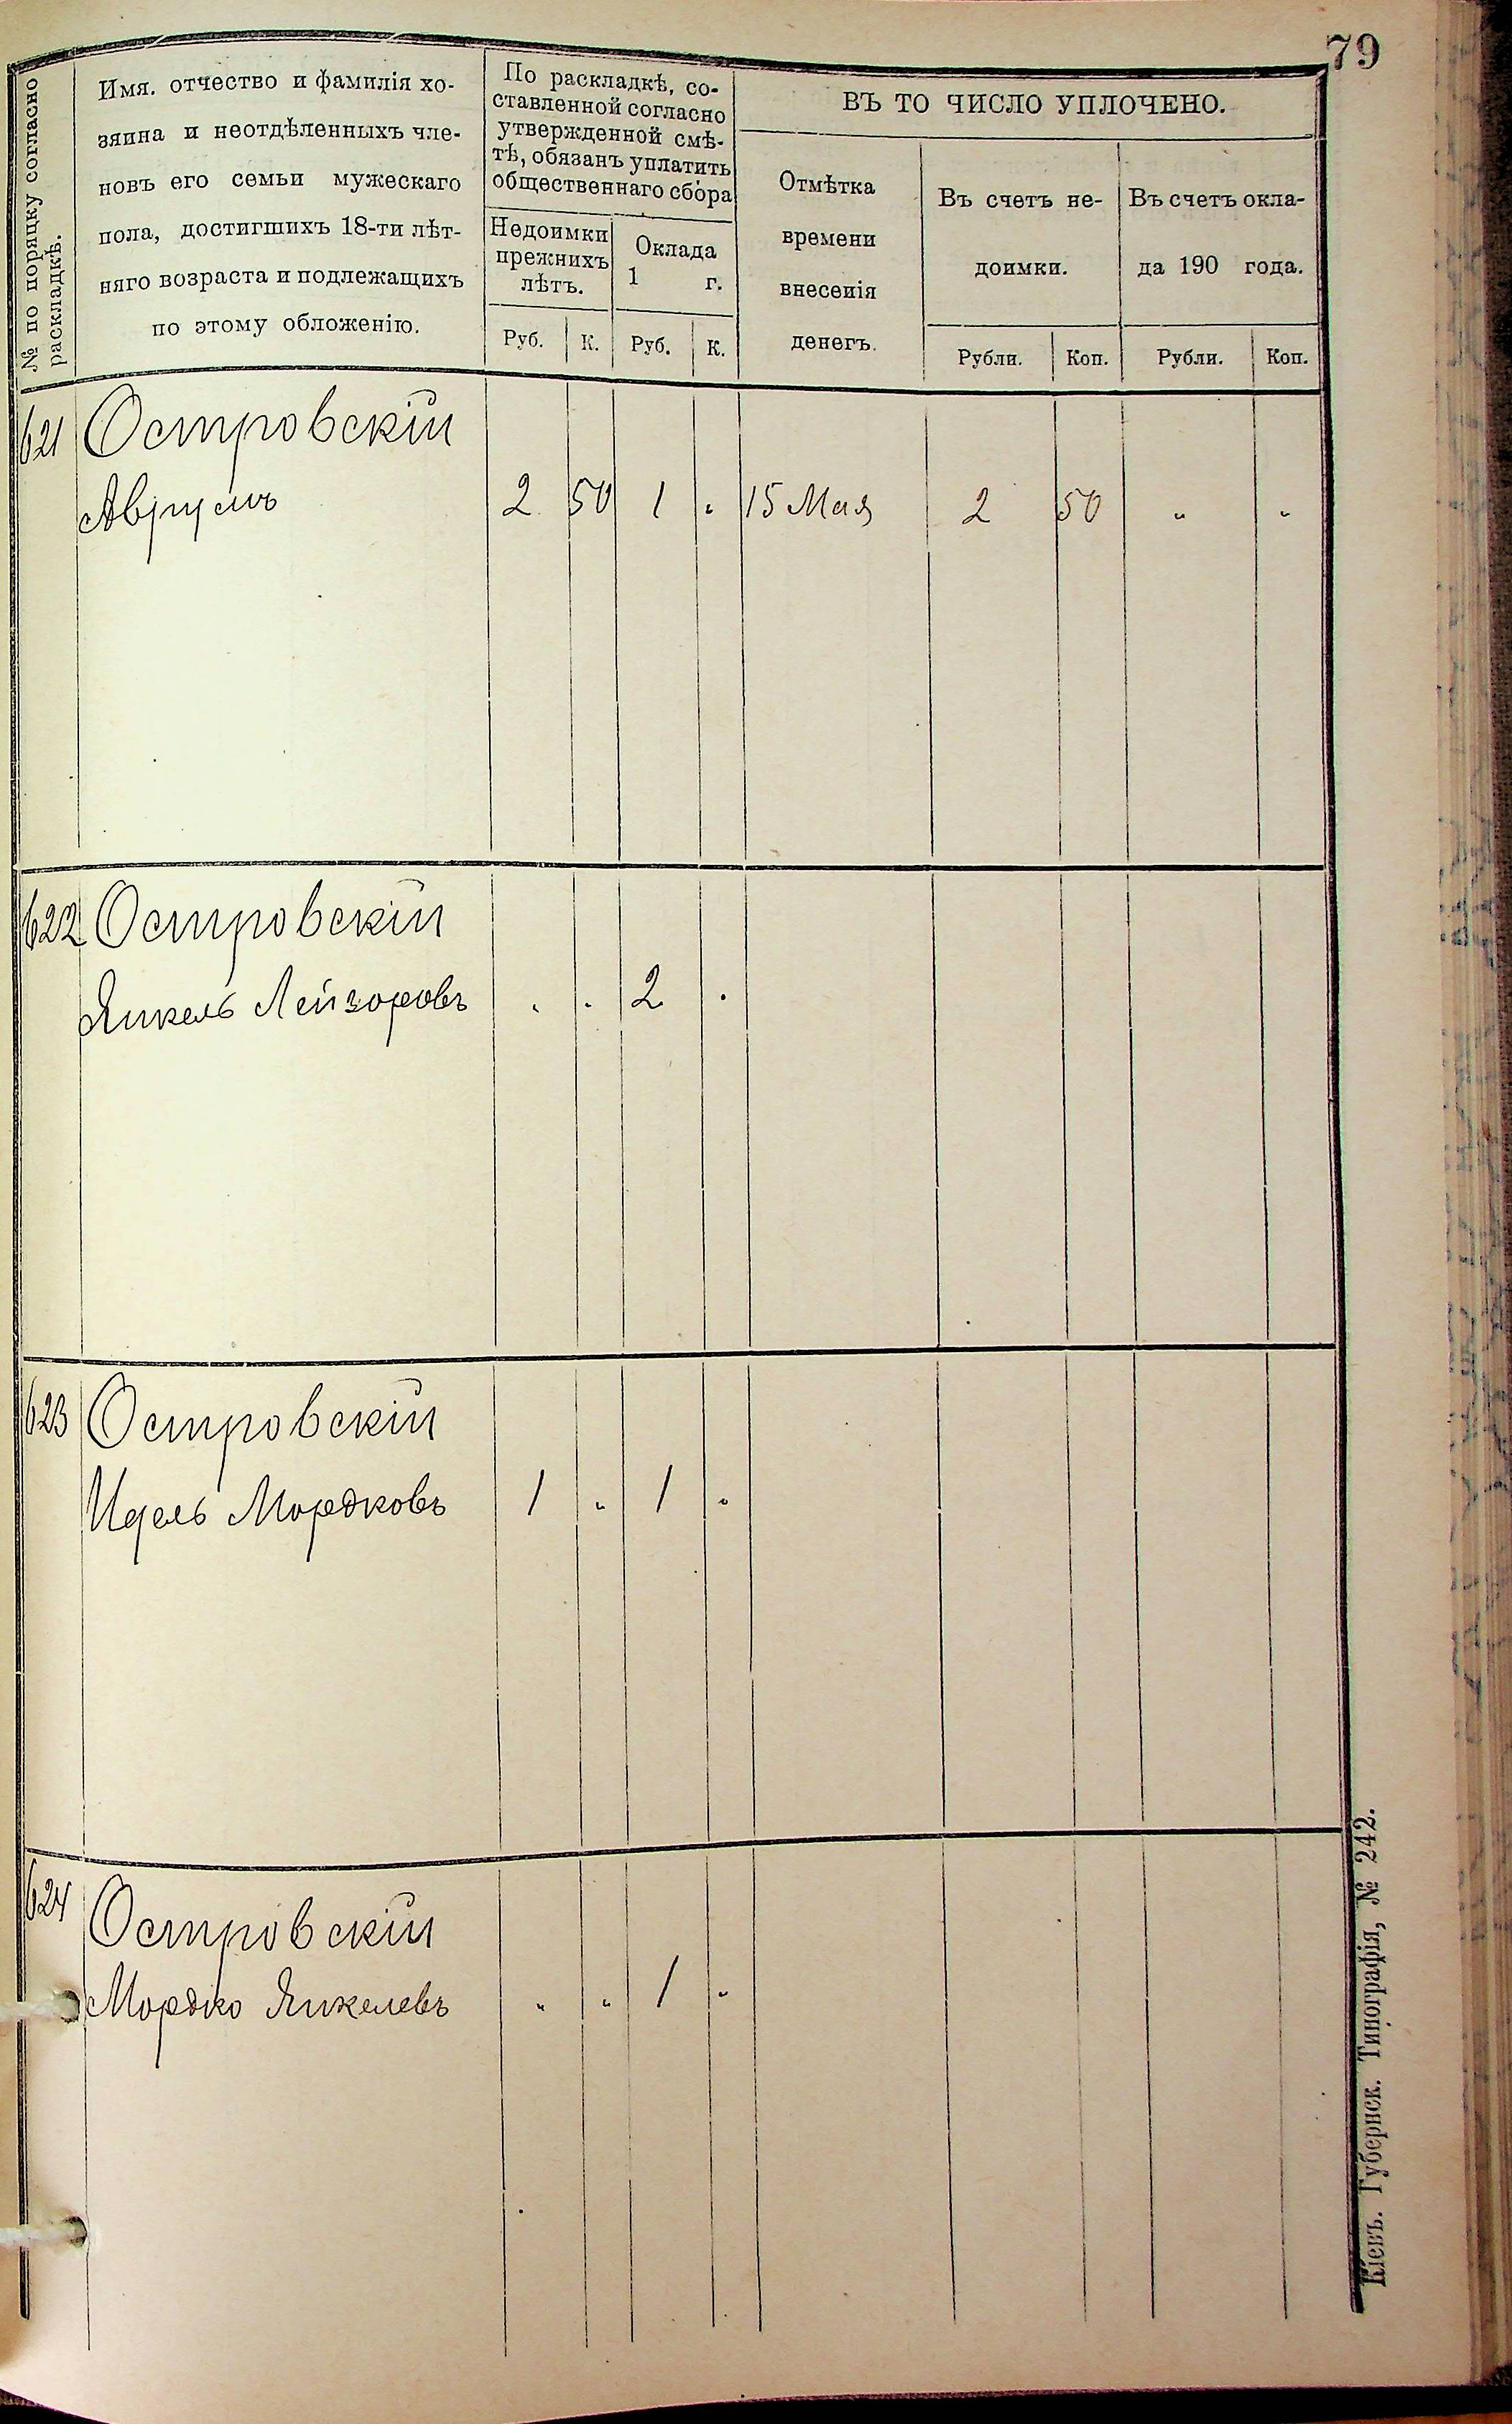 79
№ по порядку согласно
раскладкѣ.
Имя. отчество и фамилія хо-
зяина и неотдѣленныхъ чле-
новъ его семьи мужескаго
пола, достигшихъ 18-ти лѣт-
няго возраста и подлежащихъ
по этому обложенію.
По раскладкѣ, со-
ставленной согласно
утвержденной смѣ-
тѣ, обязанъ уплатить
общественнаго сбора
Недоимки
прежнихъ
лѣтъ.
Оклада
1 г.
Руб. К. Руб. К.
ВЪ ТО ЧИСЛО УПЛОЧЕНО.
Отмѣтка
времени
внесенія
денегъ.
Въ счетъ не-
доимки.
Въ счетъ окла-
да 190 года.
Рубли. Коп. Рубли. Коп.
621 Островскій
Аврумъ 2 50 1 „ 15 Мая 2 50 „ „
622 Островскій
Янкель Лейзоровъ „ „ 2 „
623 Островскій
Идель Мордковъ 1 „ 1 „
624 Островскій
Мордко Янкелевъ „ „ 1 „
Кіевъ. Губернск. Типографія, № 242.